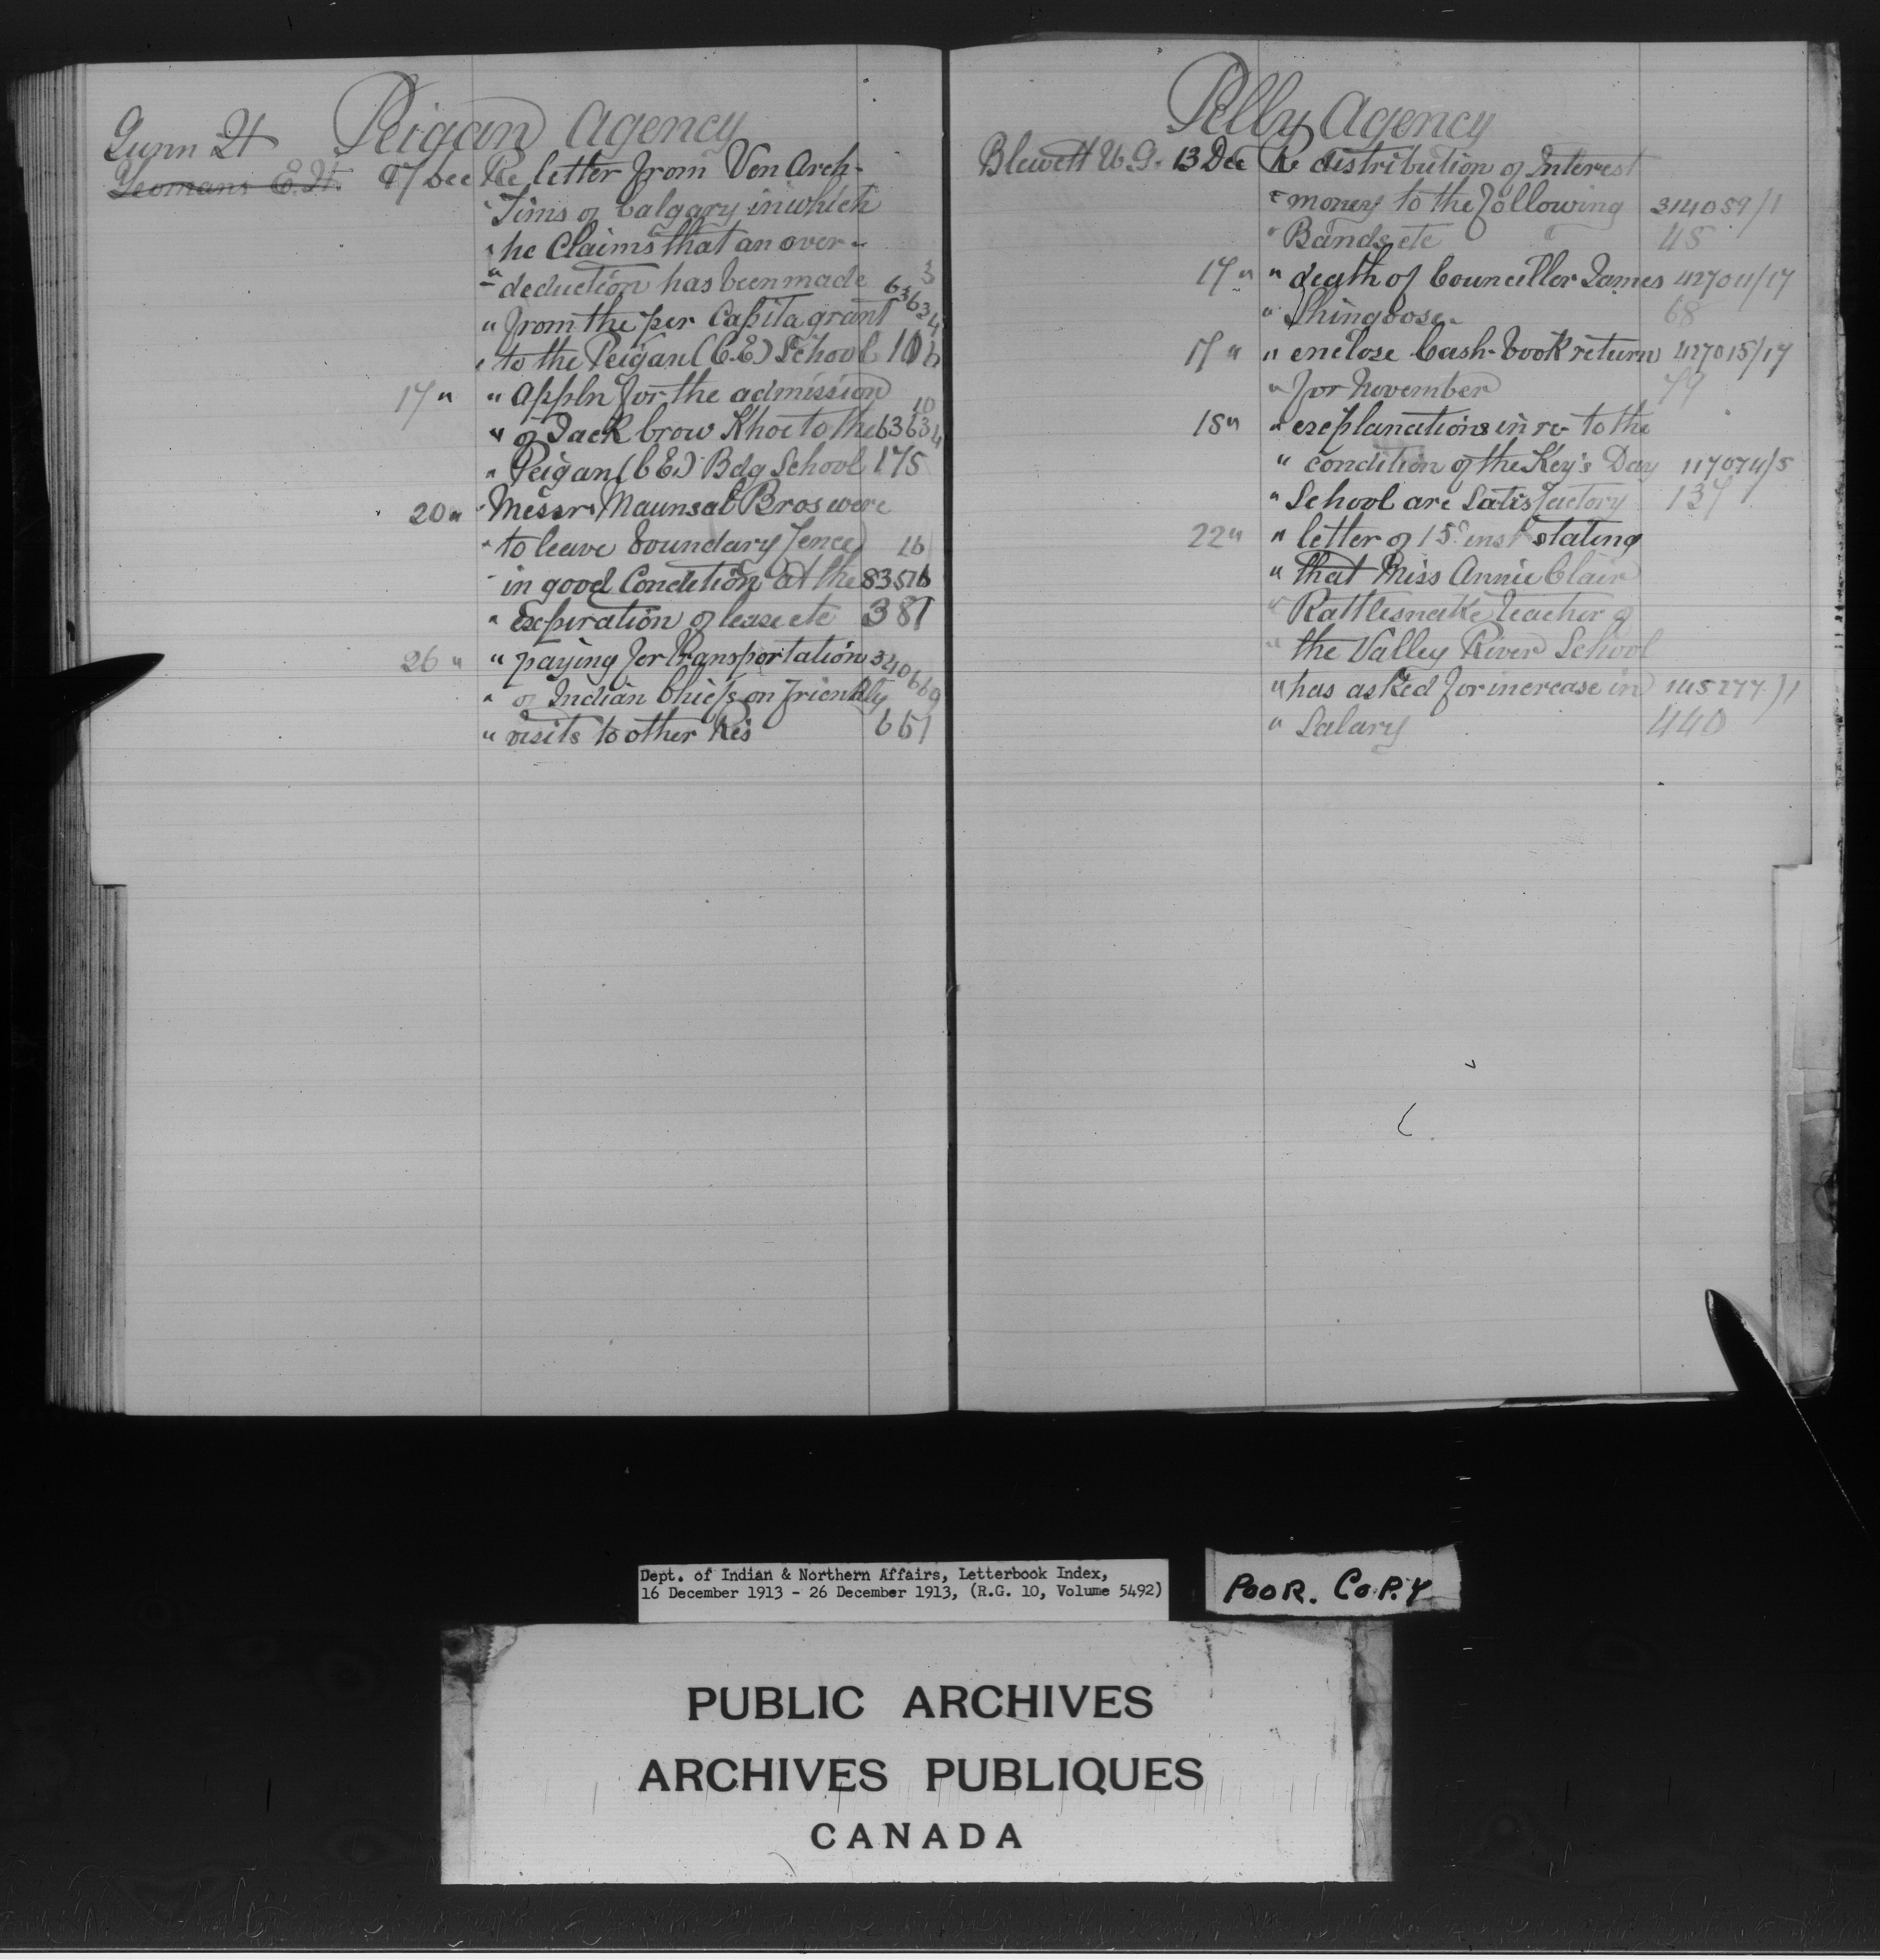 Peigan Agency
Gunn H
Yeomans E.H. 17 Dec Re letter from Ven Arch-
" Tims of Calgary in which
" he Claims that an over-
" deduction has been made 3
" from the per Capita grant 63634
" to the Peigan (C.E.) School 106
17 " " Appln for the admission 10
" of Jack Crow Shoe to the 63634
" Peigan (C.E.) Bdg School 175
20 " Messrs Maunsal Bros were
" to leave boundary fence 16
" in good Condition at the 83516
" Expiration of lease etc 381
26 " " paying for transportation 340669
" of Indian Chiefs on friendly
" visits to other Res 651
Pelly Agency
Blewett W.G. 13 Dec Re distribution of Interest
" money to the following 314059/1
" Bands etc 45
17 " " death of Councillor James 427011/17
" Shingoose 68
17 " " enclose Cash-book return 427015/17
" for November 79
18 " " explanations in re to the
" condition of the Key's Day 117074/5
" School are Satisfactory 137
22 " " letter of 15 inst stating
" that Miss Annie Clair
" Rattlesnake teacher of
" the Valley River School
" has asked for increase in 145277/1
" Salary 440
Dept. of Indian & Northern Affairs, Letterbook Index,
16 December 1913 - 26 December 1913, (R.G. 10, Volume 5492)
POOR. COPY
PUBLIC ARCHIVES
ARCHIVES PUBLIQUES
CANADA